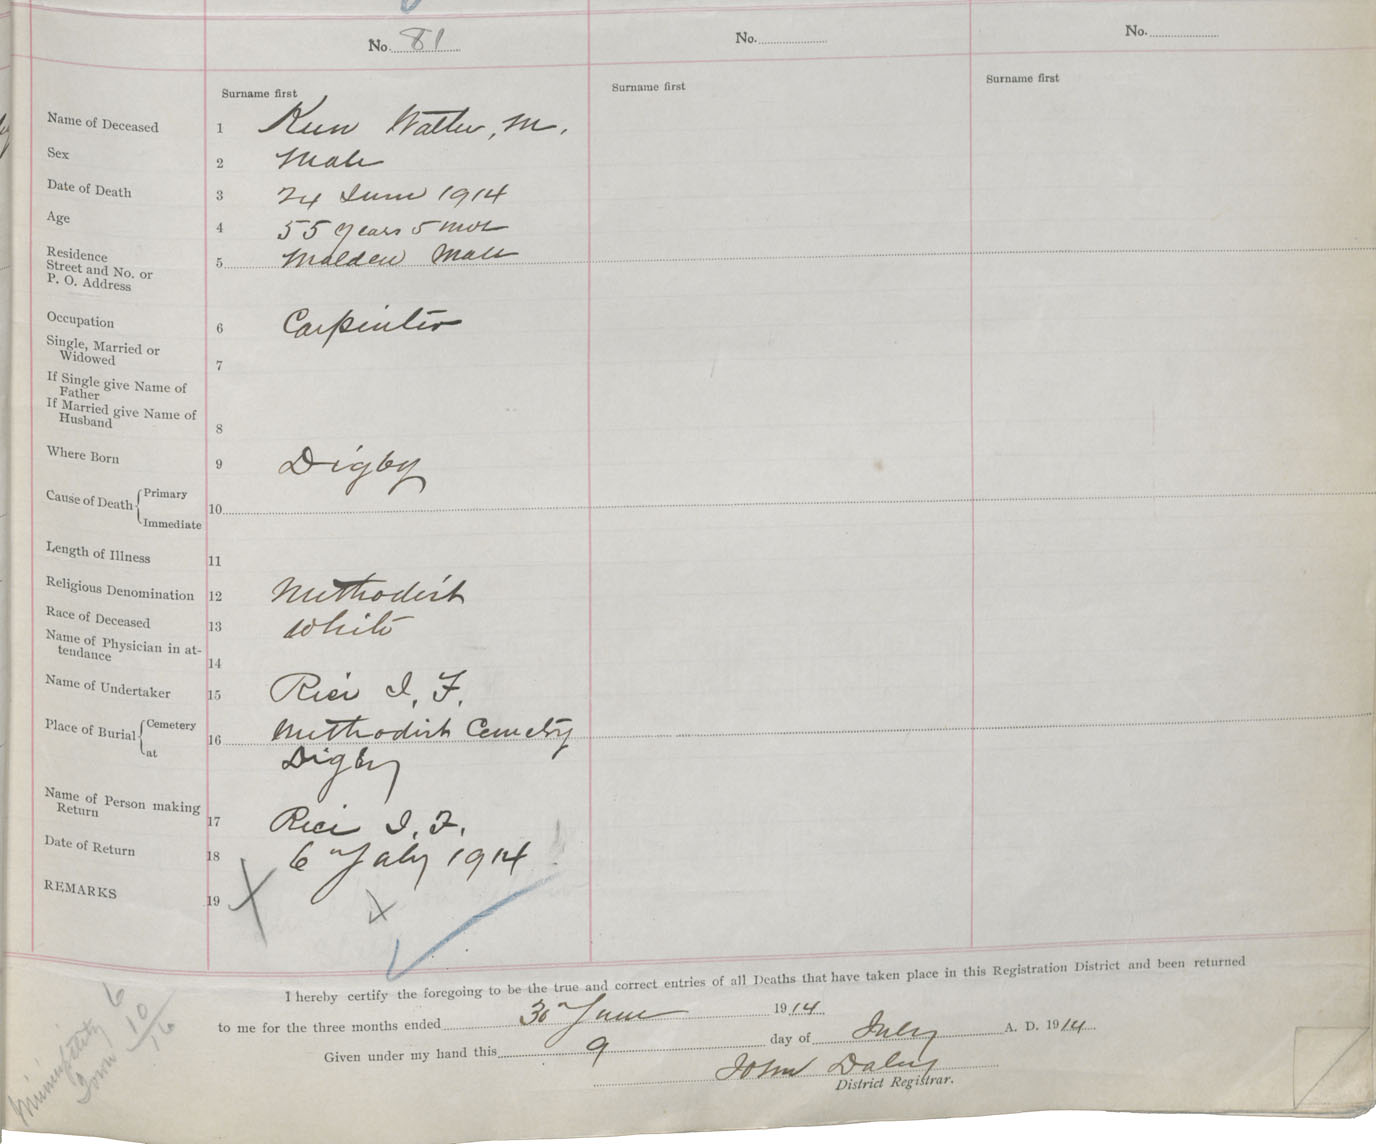 No. 81
No.
No.
Surname first
Surname first
Surname first
Name of Deceased 1 Keen Walter, M.
Sex 2 Male
Date of Death 3 24 June 1914
Age 4 55 years 5 mos
Residence
Street and No. or
P. O. Address
5 Malden Mass
Occupation 6 Carpinter
Single, Married or
Widowed
7
If Single give Name of
Father
If Married give Name of
Husband
8
Where Born 9 Digby
Cause of Death { Primary
Immediate
10
Length of Illness 11
Religious Denomination 12 Methodist
Race of Deceased 13 White
Name of Physician in at-
tendance
14
Name of Undertaker 15 Rice I. F.
Place of Burial { Cemetery
at
16 Methodist Cemetry
Digby
Name of Person making
Return
17 Rice I. F.
Date of Return 18 6 July 1914
REMARKS 19
I hereby certify the foregoing to be the true and correct entries of all Deaths that have taken place in this Registration District and been returned
to me for the three months ended 30 June 1914
Given under my hand this 9 day of July A. D. 1914
John Daley
District Registrar.
6
10